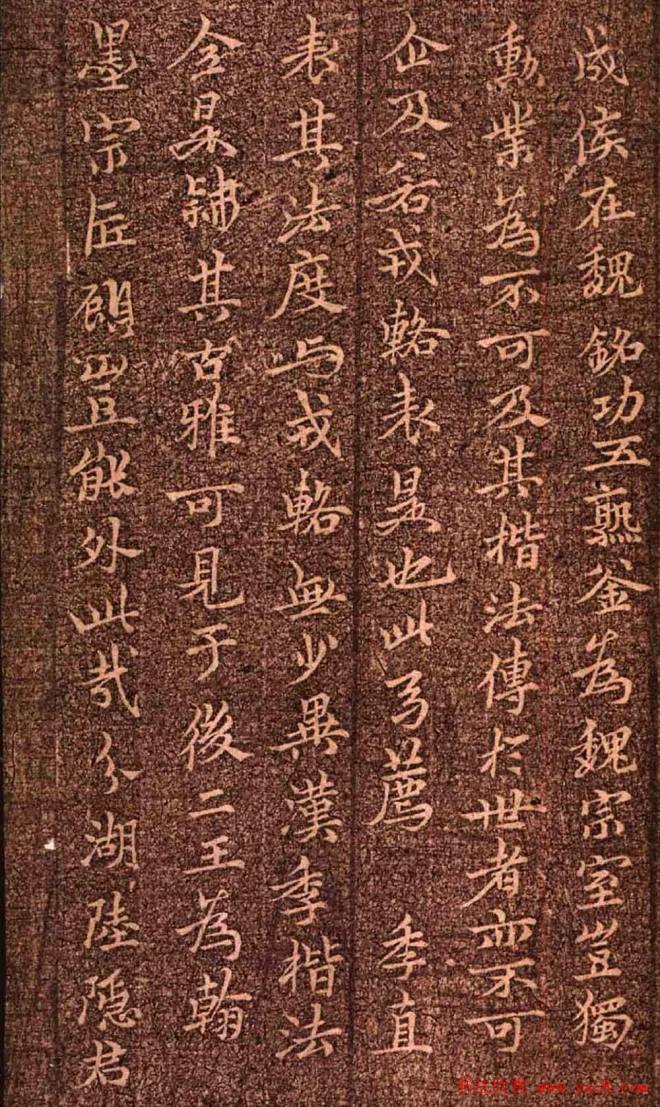 成侯在魏銘功五熟釜為魏宗室豈獨
勳業為不可及其揩法傳於世者亦不可
企及若戎輅表是也此乃薦 季直
表其法度与戎輅無少異漢季揩法
今是其古雅可見于後二王為翰
墨宗匠顧豈能外此哉分湖陸隱君